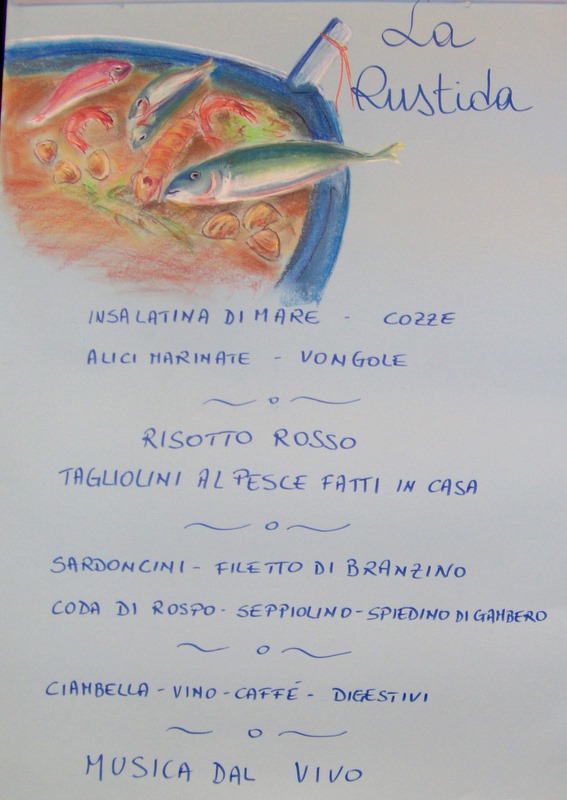 La
Rustida
INSALATINA DI MARE - COZZE
ALICI MARINATE - VONGOLE
RISOTTO ROSSO
TAGLIOLINI AL PESCE FATTI IN CASA
SARDONCINI - FILETTO DI BRANZINO
CODA DI ROSPO - SEPPIOLINO - SPIEDINO DI GAMBERO
CIAMBELLA - VINO - CAFFÉ - DIGESTIVI
MUSICA DAL VIVO